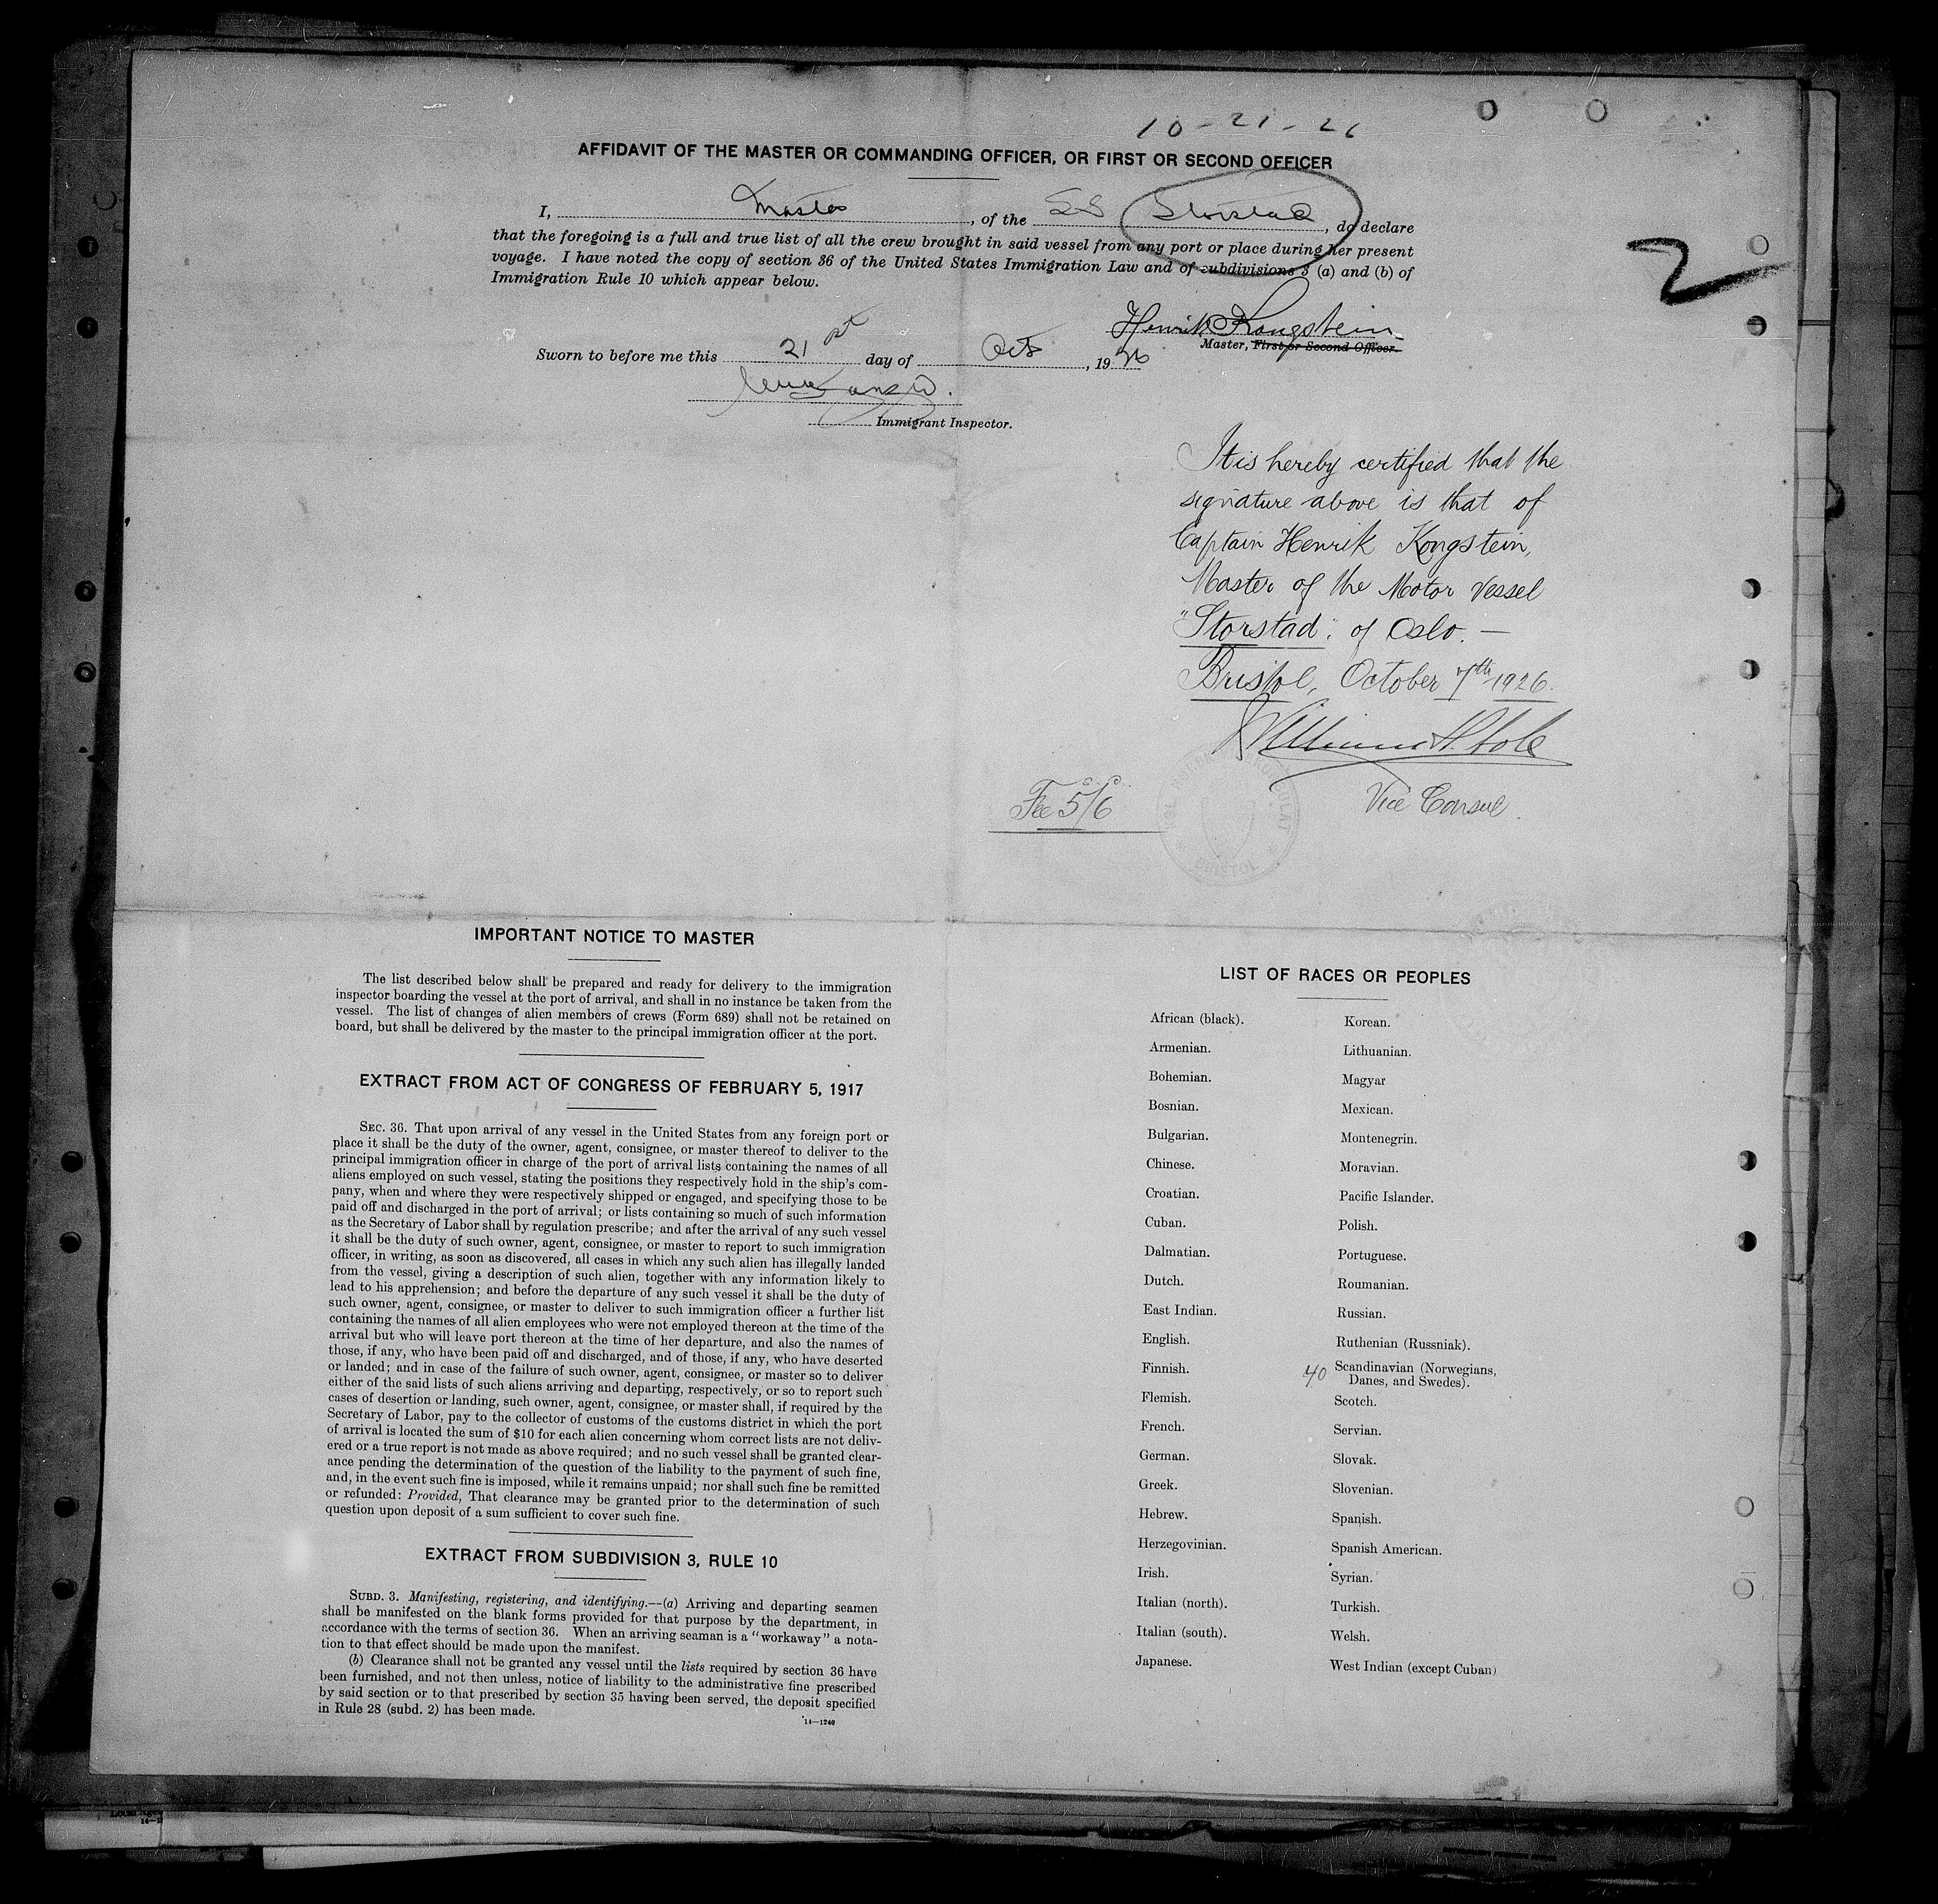 10-21-26
AFFIDAVIT OF THE MASTER OR COMMANDING OFFICER, OR FIRST OR SECOND OFFICER
I, Master, of the SS Storstad, do declare
that the foregoing is a full and true list of all the crew brought in said vessel from any port or place during her present
voyage. I have noted the copy of section 36 of the United States Immigration Law and of subdivisions 3 (a) and (b) of
Immigration Rule 10 which appear below.
2
Henrik Kongstein
Master, First or Second Officer.
Sworn to before me this 21st day of Oct, 1926
Immigrant Inspector.
It is hereby certified that the
signature above is that of
Captain Henrik Kongstein,
Master of the Motor Vessel
"Storstad". of Oslo. —
Bristol, October 7th 1926.
William H. Cole
Vice Consul.
Fee 5/6
BRISTOL
IMPORTANT NOTICE TO MASTER
The list described below shall be prepared and ready for delivery to the immigration
inspector boarding the vessel at the port of arrival, and shall in no instance be taken from the
vessel. The list of changes of alien members of crews (Form 689) shall not be retained on
board, but shall be delivered by the master to the principal immigration officer at the port.
EXTRACT FROM ACT OF CONGRESS OF FEBRUARY 5, 1917
SEC. 36. That upon arrival of any vessel in the United States from any foreign port or
place it shall be the duty of the owner, agent, consignee, or master thereof to deliver to the
principal immigration officer in charge of the port of arrival lists containing the names of all
aliens employed on such vessel, stating the positions they respectively hold in the ship's com-
pany, when and where they were respectively shipped or engaged, and specifying those to be
paid off and discharged in the port of arrival; or lists containing so much of such information
as the Secretary of Labor shall by regulation prescribe; and after the arrival of any such vessel
it shall be the duty of such owner, agent, consignee, or master to report to such immigration
officer, in writing, as soon as discovered, all cases in which any such alien has illegally landed
from the vessel, giving a description of such alien, together with any information likely to
lead to his apprehension; and before the departure of any such vessel it shall be the duty of
such owner, agent, consignee, or master to deliver to such immigration officer a further list
containing the names of all alien employees who were not employed thereon at the time of the
arrival but who will leave port thereon at the time of her departure, and also the names of
those, if any, who have been paid off and discharged, and of those, if any, who have deserted
or landed; and in case of the failure of such owner, agent, consignee, or master so to deliver
either of the said lists of such aliens arriving and departing, respectively, or so to report such
cases of desertion or landing, such owner, agent, consignee, or master shall, if required by the
Secretary of Labor, pay to the collector of customs of the customs district in which the port
of arrival is located the sum of $10 for each alien concerning whom correct lists are not deliv-
ered or a true report is not made as above required; and no such vessel shall be granted clear-
ance pending the determination of the question of the liability to the payment of such fine,
and, in the event such fine is imposed, while it remains unpaid; nor shall such fine be remitted
or refunded: Provided, That clearance may be granted prior to the determination of such
question upon deposit of a sum sufficient to cover such fine.
EXTRACT FROM SUBDIVISION 3, RULE 10
SUBD. 3. Manifesting, registering, and identifying.—(a) Arriving and departing seamen
shall be manifested on the blank forms provided for that purpose by the department, in
accordance with the terms of section 36. When an arriving seaman is a "workaway" a nota-
tion to that effect should be made upon the manifest.
(b) Clearance shall not be granted any vessel until the lists required by section 36 have
been furnished, and not then unless, notice of liability to the administrative fine prescribed
by said section or to that prescribed by section 35 having been served, the deposit specified
in Rule 28 (subd. 2) has been made.
14—1240
LIST OF RACES OR PEOPLES
African (black).
Armenian.
Bohemian.
Bosnian.
Bulgarian.
Chinese.
Croatian.
Cuban.
Dalmatian.
Dutch.
East Indian.
English.
Finnish.
Flemish.
French.
German.
Greek.
Hebrew.
Herzegovinian.
Irish.
Italian (north).
Italian (south).
Japanese.
Korean.
Lithuanian.
Magyar
Mexican.
Montenegrin.
Moravian.
Pacific Islander.
Polish.
Portuguese.
Roumanian.
Russian.
Ruthenian (Russniak).
40 Scandinavian (Norwegians,
Danes, and Swedes).
Scotch.
Servian.
Slovak.
Slovenian.
Spanish.
Spanish American.
Syrian.
Turkish.
Welsh.
West Indian (except Cuban)